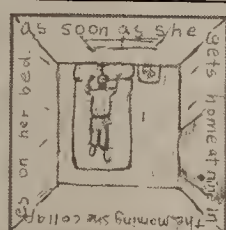 as soon as she
gets home at nine in
the morning she collap
ses on her bed.